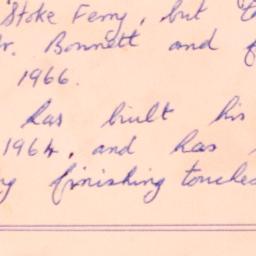 Stoke Ferry, but
Mr. Bonnett and
1966.
has built his
1964, and has
finishing touches